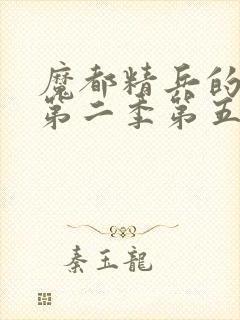 魔都精兵的
第二季第五
秦玉龍